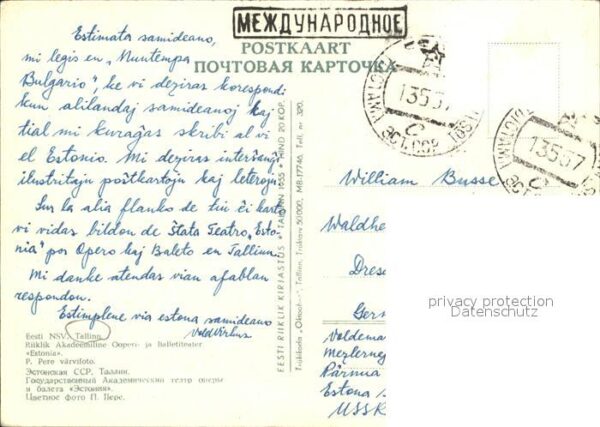 МЕЖДУНАРОДНОЕ
POSTKAART
ПОЧТОВАЯ КАРТОЧКА
Estimata samideano,
mi legis en „Nuntempa
Bulgario", ke vi deziras korespondi
kun alilandaj samideanoj kaj
tial mi kuraĝas skribi al vi
el Estonio. Mi deziras interŝanĝi
ilustritajn poŝtkartojn kaj leterojn.
Sur la alia flanko de tiu ĉi karto
vi vidas bildon de Ŝtata Teatro „Esto-
nia" por Opero kaj Baleto en Tallinn.
Mi danke atendas vian afablan
respondon.
Estimplene via estona samideano
Eesti NSV. Tallinn.
Riiklik Akadeemiline Ooperi- ja Balletiteater
«Estonia».
P. Pere värvifoto.
Эстонская ССР. Таллин.
Государственный Академический театр оперы
и балета «Эстония».
Цветное фото П. Пере.
EESTI RIIKLIK KIRJASTUS • TALLINN 1955 • HIND 20 KOP.
Trükikoda „Oktoober", Tallinn. Trükiarv 50 000. MB-17746. Tell. nr. 320.
13557
13557
William Busse
Waldhe
Dres
Ger
Voldema
Merlerneg
Pärnus
Estona S
USSR
privacy protection
Datenschutz